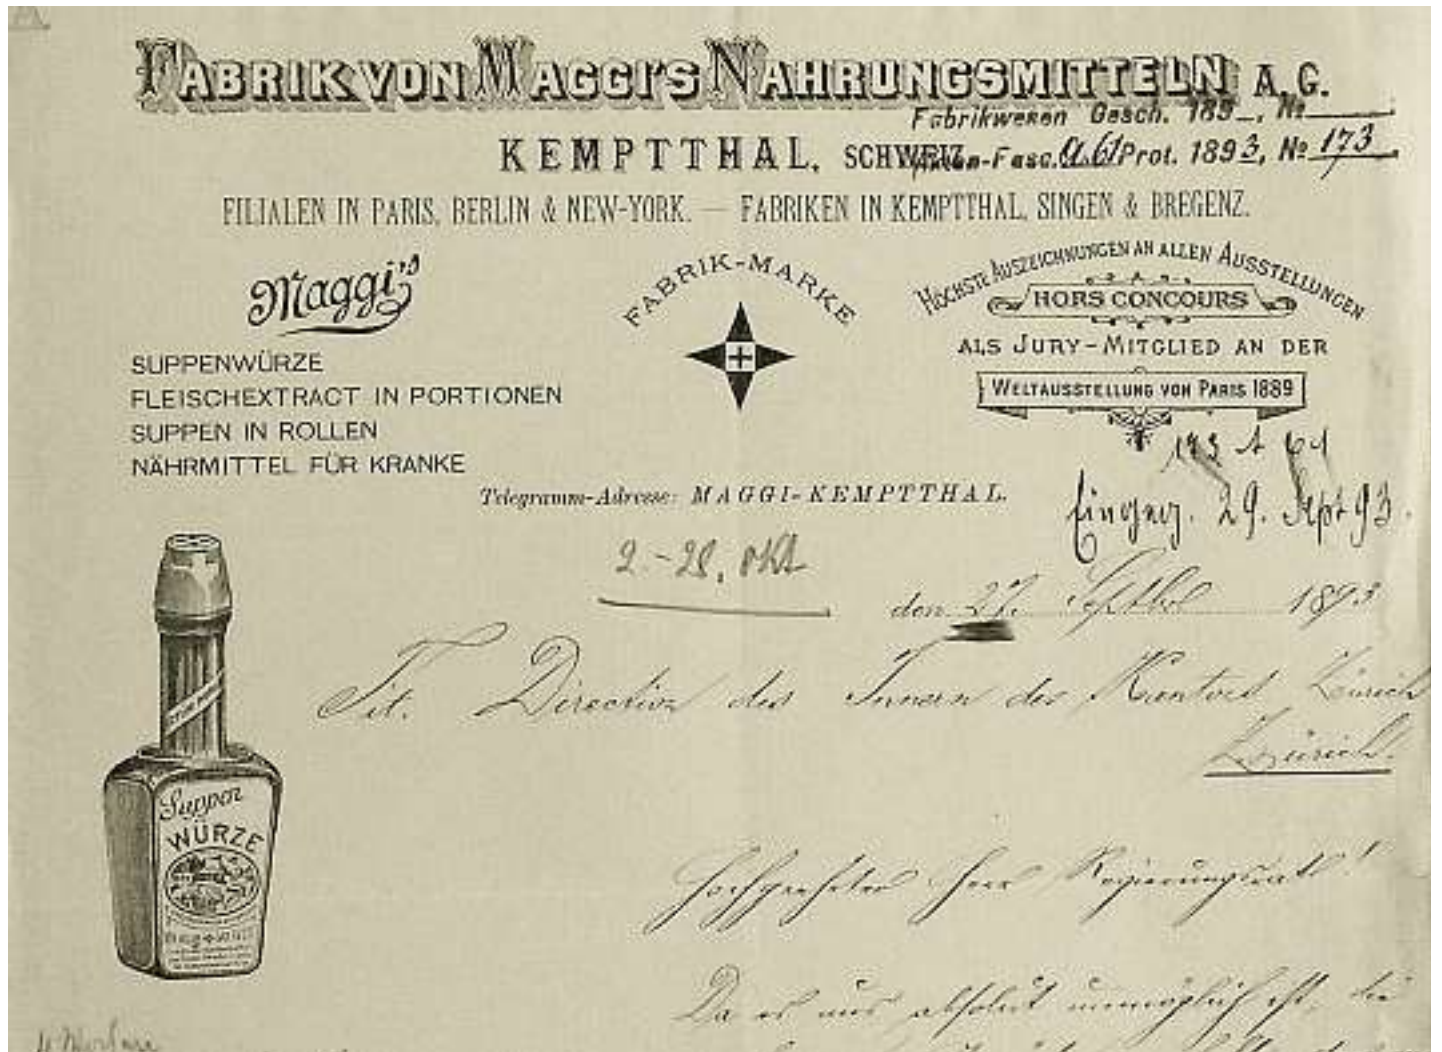 FABRIK VON MAGGI'S NAHRUNGSMITTELN A.G.
Fabrikwesen Gesch. 189_, No
KEMPTTHAL, SCHWEIZ
Akten-Fasc. a 61 Prot. 1893, No 173
FILIALEN IN PARIS, BERLIN & NEW-YORK. — FABRIKEN IN KEMPTTHAL, SINGEN & BREGENZ.
Maggi's
SUPPENWÜRZE
FLEISCHEXTRACT IN PORTIONEN
SUPPEN IN ROLLEN
NÄHRMITTEL FÜR KRANKE
FABRIK-MARKE
HÖCHSTE AUSZEICHNUNGEN AN ALLEN AUSSTELLUNGEN
HORS CONCOURS
ALS JURY-MITGLIED AN DER
WELTAUSSTELLUNG VON PARIS 1889
173 A 61
Telegramm-Adresse: MAGGI-KEMPTTHAL.
Eingeg. 29. Sept 93.
2.-28. Okt
den 27. Septbr 1893
Tit. Direction des Innern des Kantons Zürich
Zürich.
Suppen
WÜRZE
Hochgeehrter Herr Regierungsrat!
Da es uns absolut unmöglich ist, die